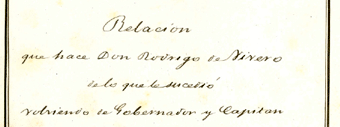 Relacion
que hace Don Rodrigo de Vivero
de lo que le sucedió
volviendo de Gobernador y Capitan